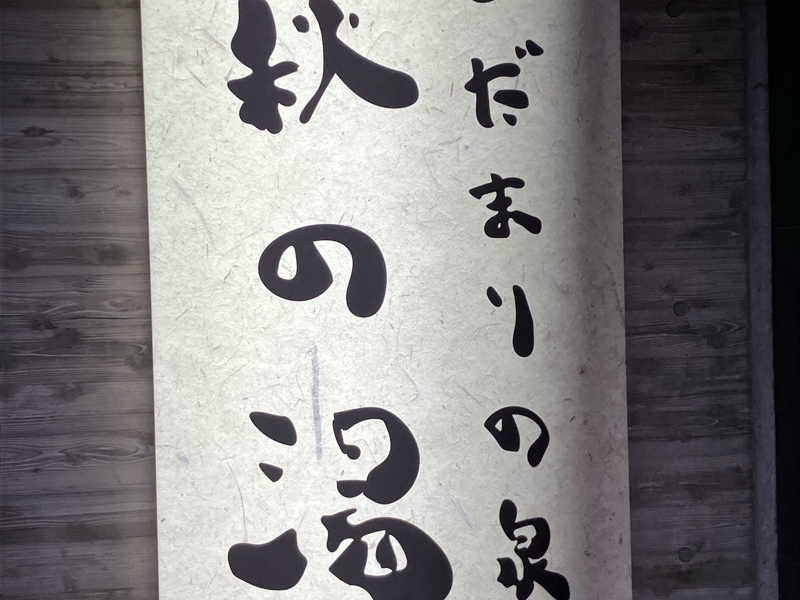 だまりの泉
秋の湯